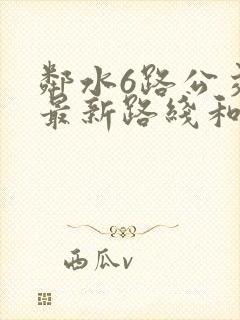 鄰水6路公交
最新路綫和
西瓜v